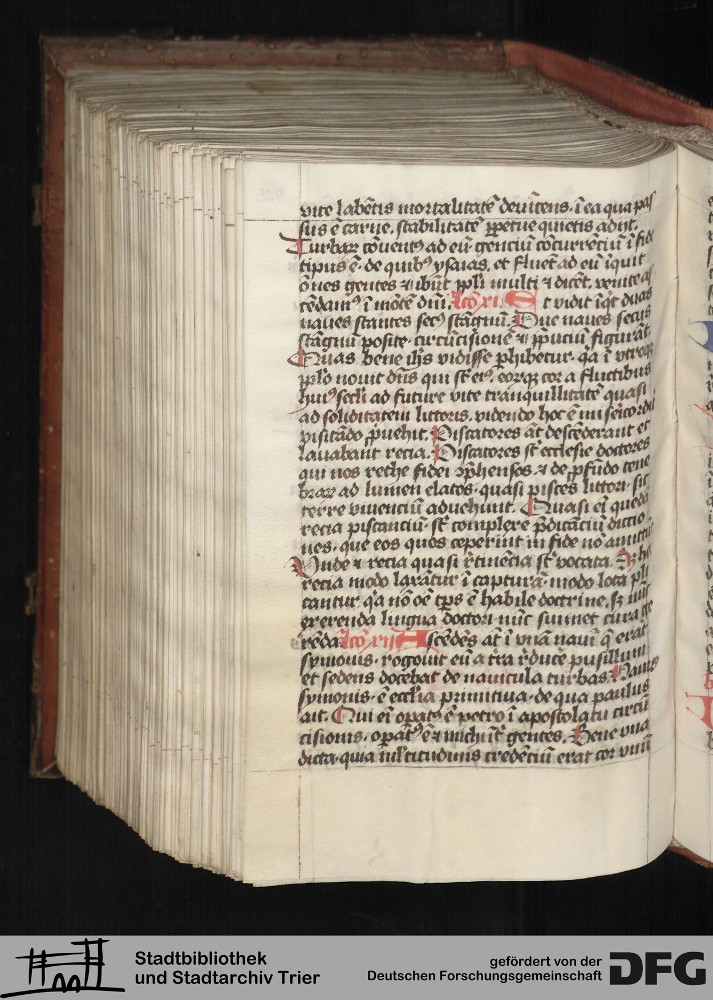 vite labētis mortalitatē devitens · ī ea qua pas
sus ē carne, stabilitatē ꝑpetue quietis adiit.
Turbaꝝ cōventꝰ ad eū · genciū cōcurrēciū ī fide
tipus ē · de quibꝰ ysaias. et fluēt ad eū īquit
ōnes gentes ⁊ ibūt ppli multi ⁊ dicēt. venite as
cēdamꝰ ī mōtē dñi. Lcō xi. Et vidit īqt duas
naves stantes secꝰ stāgnū. Due naves secus
stāgnū posite · circūcisionē ⁊ ꝓpuciū figurāt.
Quas bene ihs vidisse ꝑhibetur · qa ī vtroqꝫ
pplo novit dñs qui st eiꝰ. eorqꝫ cor a fluctibus
huiꝰ secli ad future vite tranquillitatē quasi
ad soliditatem littoris. videndo hoc ē misericordit
visitādo ꝓvehit. Piscatores āt descēderant et
lavabant recia. Piscatores st ecclesie doctores
qui nos rethe fidei ꝯphensos · ⁊ de ꝓfūdo tene
braꝝ ad lumen elatos · quasi pisces littori · sic
terre viventiū advehunt. Quasi eī quedā
recia piscantiū · st complexe p̄dicātiū dictio
nes · que eos quos ceperint in fide nō amittūt
Unde ⁊ recia quasi r̄tinēcia st vocata. Sꝫ hec
recia modo laxātur ī capturā · modo lota pli
cantur · qa nō oē tp̄s ē habile doctrine. sꝫ nūc
exerenda lingua doctori · nūc suimet cura ge
rēda Lcō xii Ascēdēs āt ī unā navī q̄ erat
symonis · rogavit eū a tr̄a r̄duce pusillum
et sedens docebat de navicula turbas. Navis
symonis · ē eccl̄ia primitiva · de qua paulus
ait. Qui eī opatꝰ ē petro ī apostolatū circū
cisionis · opatꝰ ē ⁊ michi īt̄ gentes. Bene una
dicta · quia multitudinis credētiū erat cor unū
Stadtbibliothek
und Stadtarchiv Trier
gefördert von der
Deutschen Forschungsgemeinschaft DFG